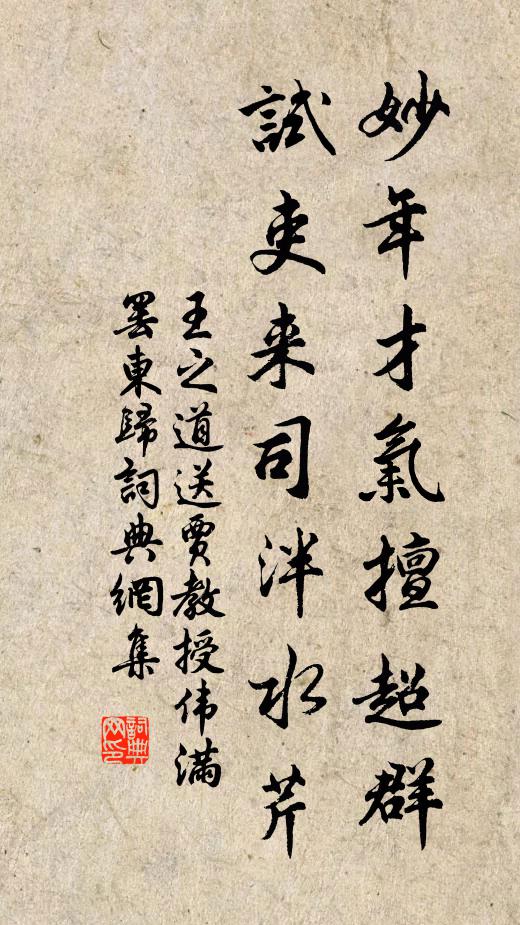 妙年才氣擅超群
試吏来司泮水芹
王之道送賈教授伟滿
罢東歸詞典網集
詞典
网印